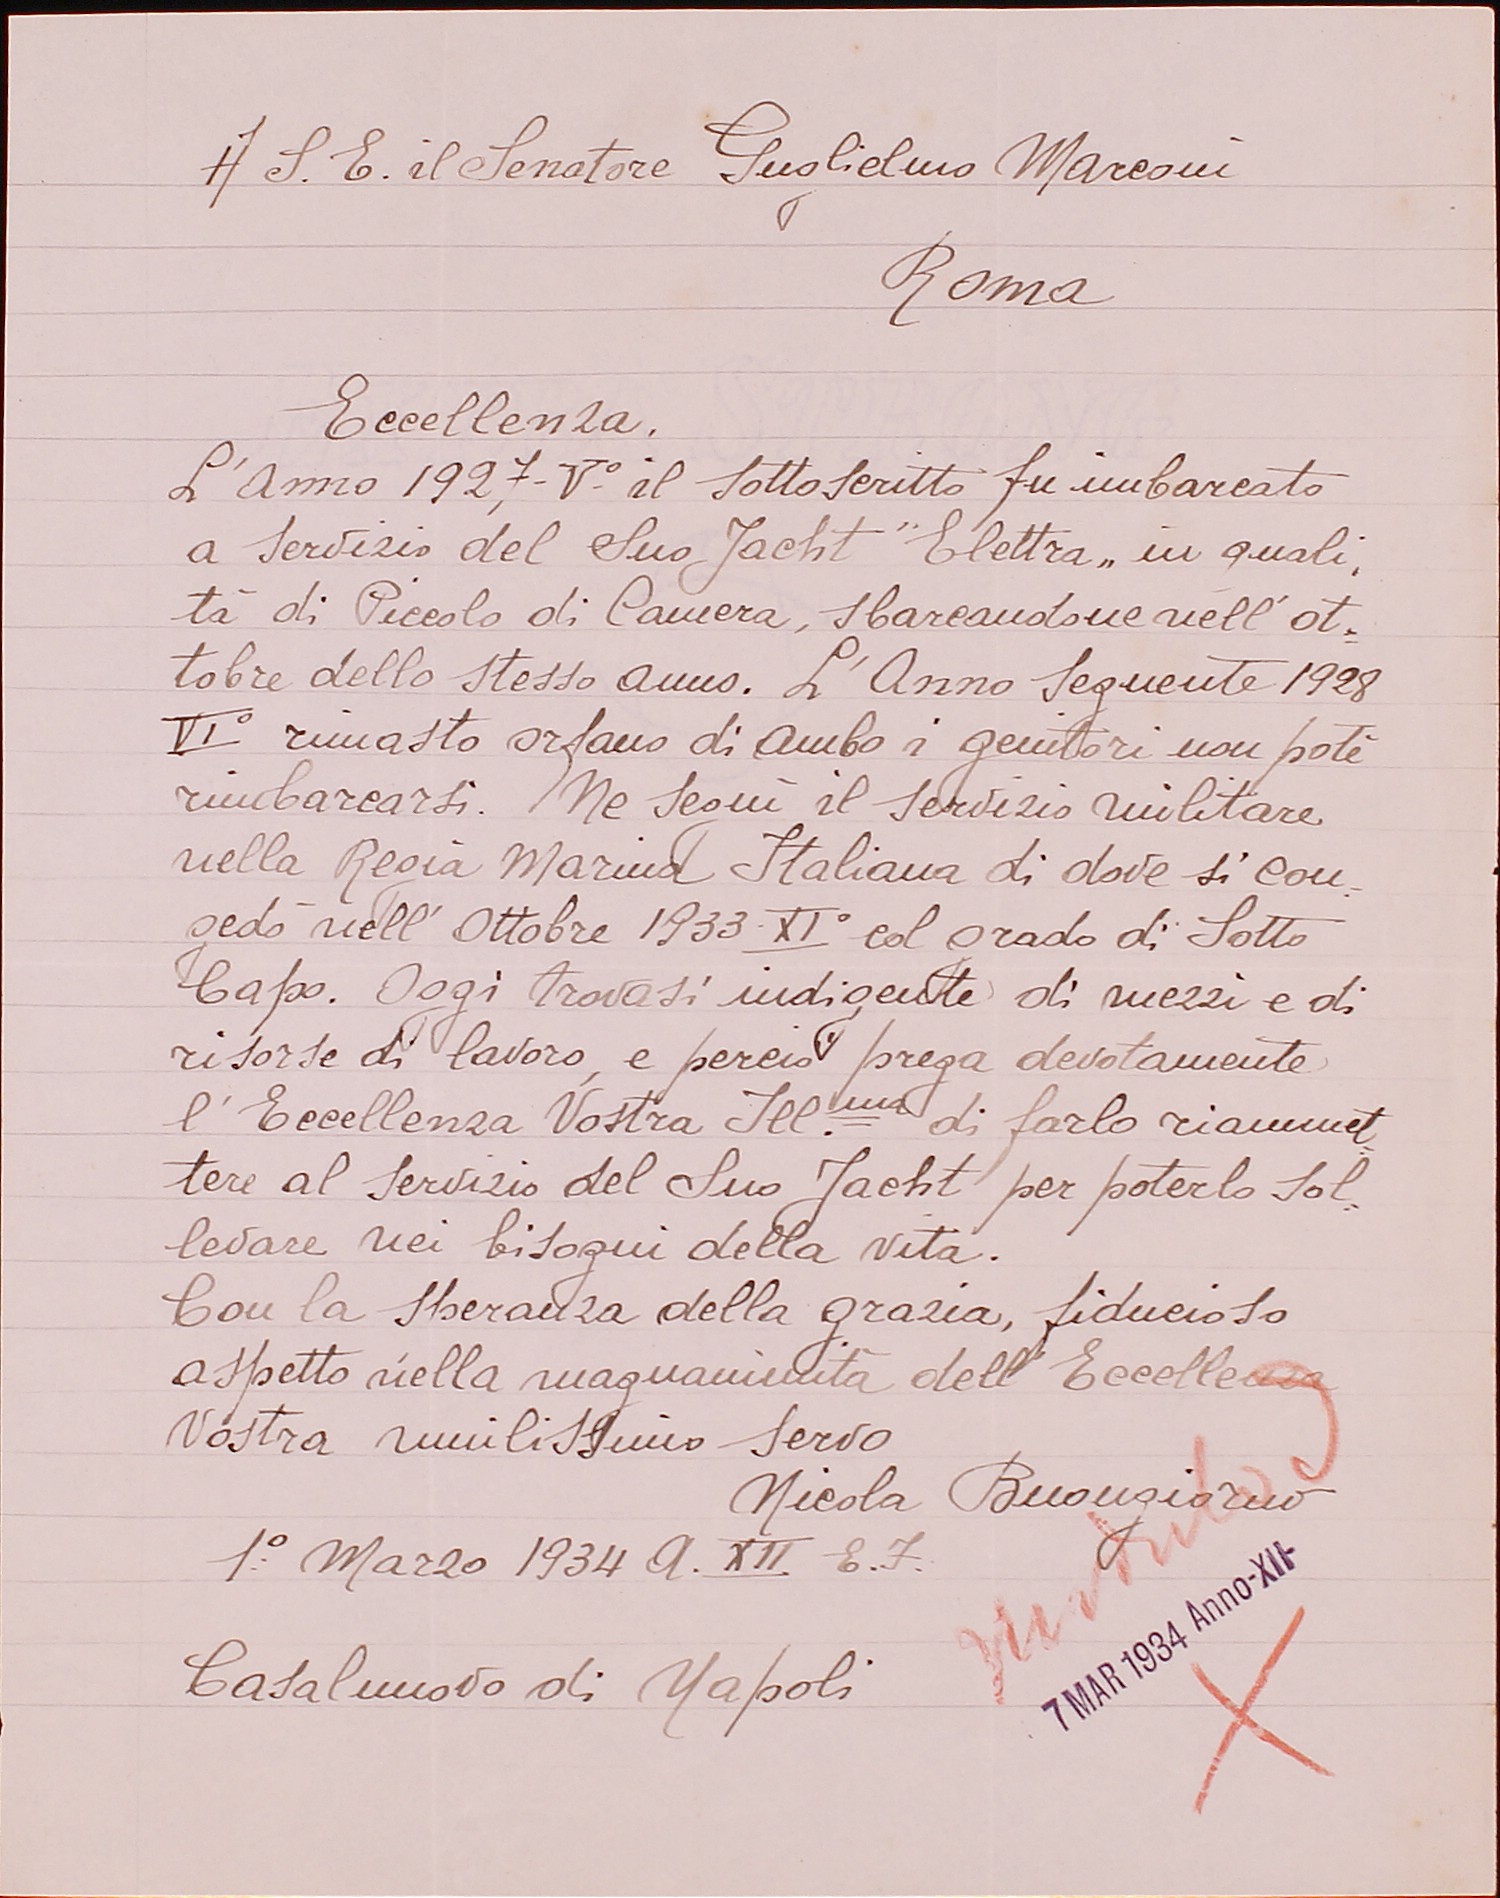 A S. E. il Senatore Guglielmo Marconi
Roma
Eccellenza.
L'Anno 1927-V° il sottoscritto fu imbarcato
a servizio del Suo Jacht "Elettra„ in quali-
tà di Piccolo di Camera, sbarcandone nell'ot-
tobre dello stesso anno. L'Anno seguente 1928
VI° rimasto orfano di ambo i genitori non potè
rimbarcarsi. Ne seguì il servizio militare
nella Regia Marina Italiana di dove si con-
gedò nell'Ottobre 1933-XI° col grado di Sotto
Capo. Oggi trovasi indigente di mezzi e di
risorse di lavoro, e perciò prega devotamente
l'Eccellenza Vostra Ill.ma di farlo riammet-
tere al servizio del Suo Jacht per poterlo sol-
levare nei bisogni della vita.
Con la speranza della grazia, fiducioso
aspetto nella magnanimità dell'Eccellenza
Vostra umilissimo servo
Nicola Buongiorno
1° Marzo 1934 A. XII E.F.
7 MAR 1934 Anno-XII
Casalnuovo di Napoli